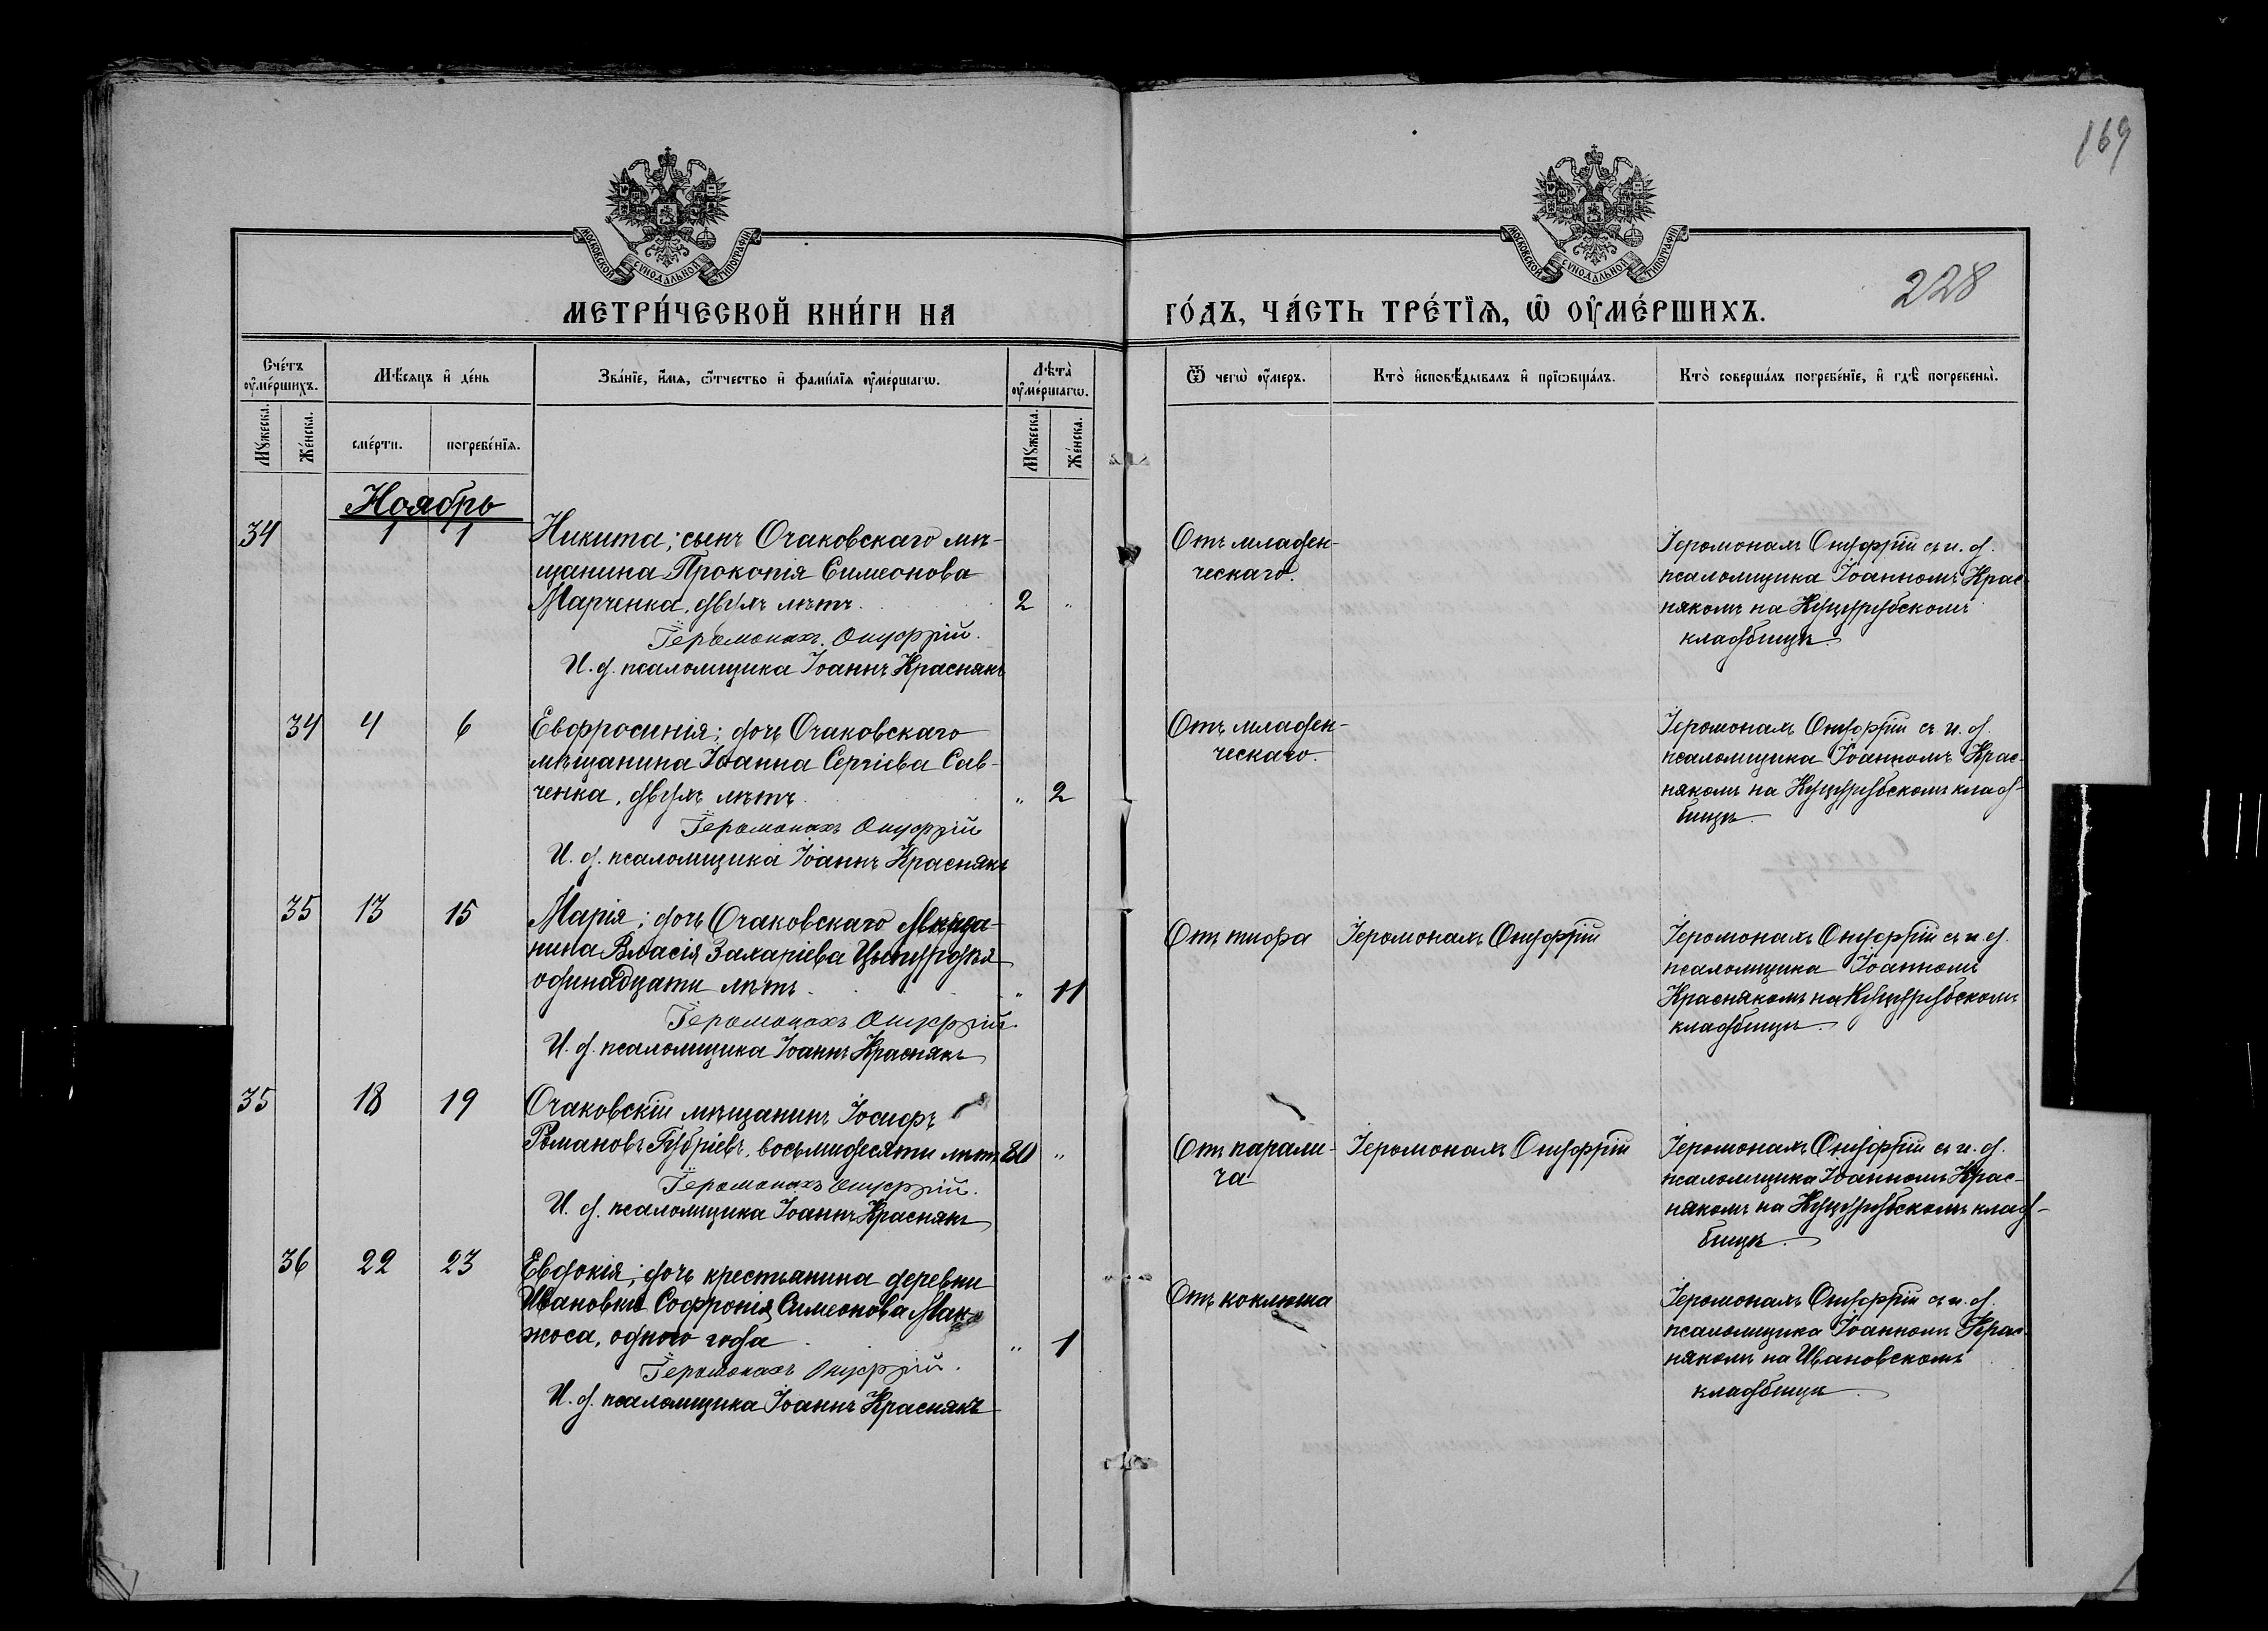 169
МОСКОВСКОЙ СУНОДАЛЬНОЙ ТИПОГРАФІИ
МОСКОВСКОЙ СУНОДАЛЬНОЙ ТИПОГРАФІИ
228
МЕТРИ́ЧЕСКОЙ КНИ́ГИ НА ГО́ДЪ, ЧА́СТЬ ТРЕ́ТЇѦ, Ѡ҆ ОУ҆МЕ́РШИХЪ.
Сче́тъ оу҆ме́ршихъ.
Мѣ́сяцъ и҆ де́нь
Зва́нїе, и҆́мя, ѻ҆́тчество и҆ фами́лїя оу҆ме́ршагѡ.
Лѣ́та оу҆ме́ршагѡ.
Ѿ чегѡ̀ оу҆́меръ.
Кто̀ и҆сповѣ́дывалъ и҆ прїѡбща́лъ.
Кто̀ соверша́лъ погребе́нїе, и҆ гдѣ̀ погребены̀.
Мꙋ́жеска.
Же́нска.
сме́рти.
погребе́нїя.
Мꙋ́жеска.
Же́нска.
Ноябрь
34 1 1
Никита; сынъ Очаковскаго мѣ-
щанина Прокопія Симеонова
Марченка, двухъ лѣтъ. 2 "
Іеромонахъ Онуфрій.
И. д. псаломщика Іоаннъ Краснякъ
Отъ младен-
ческаго.
Іеромонахъ Онуфрій съ и. д.
псаломщика Іоанномъ Крас-
някомъ на Куцурубскомъ
кладбищѣ.
34 4 6
Евфросинія; дочь Очаковскаго
мѣщанина Іоанна Сергіева Сав-
ченка, двухъ лѣтъ. " 2
Іеромонахъ Онуфрій
И. д. псаломщика Іоаннъ Краснякъ
Отъ младен-
ческаго.
Іеромонахъ Онуфрій съ и. д.
псаломщика Іоанномъ Крас-
някомъ на Куцурубскомъ клад-
бищѣ.
35 13 15
Марія; дочь Очаковскаго Мѣща-
нина Власія Захаріева
одинадцати лѣтъ. " 11
Іеромонахъ Онуфрій.
И. д. псаломщика Іоаннъ Краснякъ
Отъ тифа
Іеромонахъ Онуфрій
Іеромонахъ Онуфрій съ и. д.
псаломщика Іоанномъ
Краснякомъ на Куцурубскомъ
кладбищѣ.
35 18 19
Очаковскій мѣщанинъ Іосифъ
Романовъ Губріевъ, восьмидесяти лѣтъ 80 "
Іеромонахъ Онуфрій.
И. д. псаломщика Іоаннъ Краснякъ
Отъ парали-
ча
Іеромонахъ Онуфрій
Іеромонахъ Онуфрій съ и. д.
псаломщика Іоанномъ Крас-
някомъ на Куцурубскомъ клад-
бищѣ.
36 22 23
Евдокія; дочь крестьянина деревни
Ивановки Софронія Симеонова Ман-
жоса, одного года " 1
Іеромонахъ Онуфрій.
И. д. псаломщика Іоаннъ Краснякъ
Отъ коклюша
Іеромонахъ Онуфрій съ и. д.
псаломщика Іоанномъ Крас-
някомъ на Ивановскомъ
кладбищѣ.